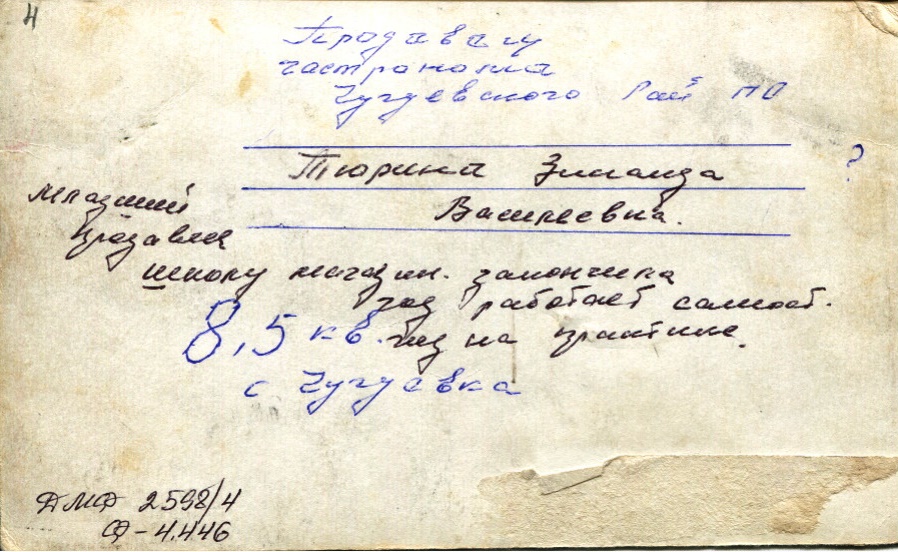 4
Продавец
гастронома
Чугуевского Рай ПО
Тюрина Зинаида ?
Васильевна.
Младший
продавец
школу магазин. закончила
год работает самост.
8,5 кв. год на практике.
с Чугуевка
ДМФ 2598/4
Ф-4.446